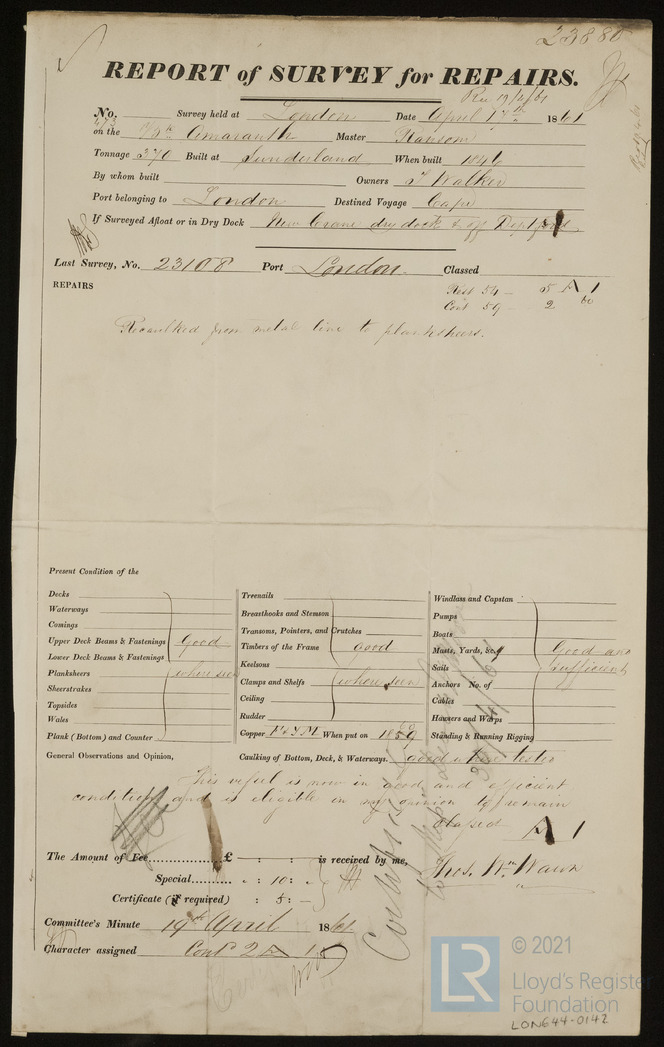 23880
REPORT of SURVEY for REPAIRS.
Rec 19/4/61
No. 473 Survey held at London Date April 17th 1861
on the Amaranth Master Ransom
Tonnage 370 Built at Sunderland When built 1846
By whom built Owners J Walker
Port belonging to London Destined Voyage Cape
If Surveyed Afloat or in Dry Dock New Crane dry dock & off Deptford
Last Survey, No. 23108 Port London Classed A 1
REPAIRS
Rest 54 — 5 A 1
Cont 59 — 2 do
Recaulked from metal line to planksheers.
Present Condition of the
Decks
Waterways
Comings
Upper Deck Beams & Fastenings Good
Lower Deck Beams & Fastenings
Planksheers where seen
Sheerstrakes
Topsides
Wales
Plank (Bottom) and Counter
Treenails
Breasthooks and Stemson
Transoms, Pointers, and Crutches
Timbers of the Frame good
Keelsons
Clamps and Shelfs where seen
Ceiling
Rudder
Copper F & Y M When put on 1859
Windlass and Capstan
Pumps
Boats
Masts, Yards, &c. Good and
Sails sufficient
Anchors No. of
Cables
Hawsers and Warps
Standing & Running Rigging
General Observations and Opinion, Caulking of Bottom, Deck, & Waterways. good where tested
This vessel is now in good and efficient
condition and is eligible in my opinion to remain
classed A 1
The Amount of Fee £ — : — : — is received by me,
Special : 10 : —
Certificate (if required) : 5 : —
Thos. Wm. Wawn
Committee's Minute 19th April 1861
Character assigned Cont 2 A 1
© 2021
LR
Lloyd's Register
Foundation
LON644-0142